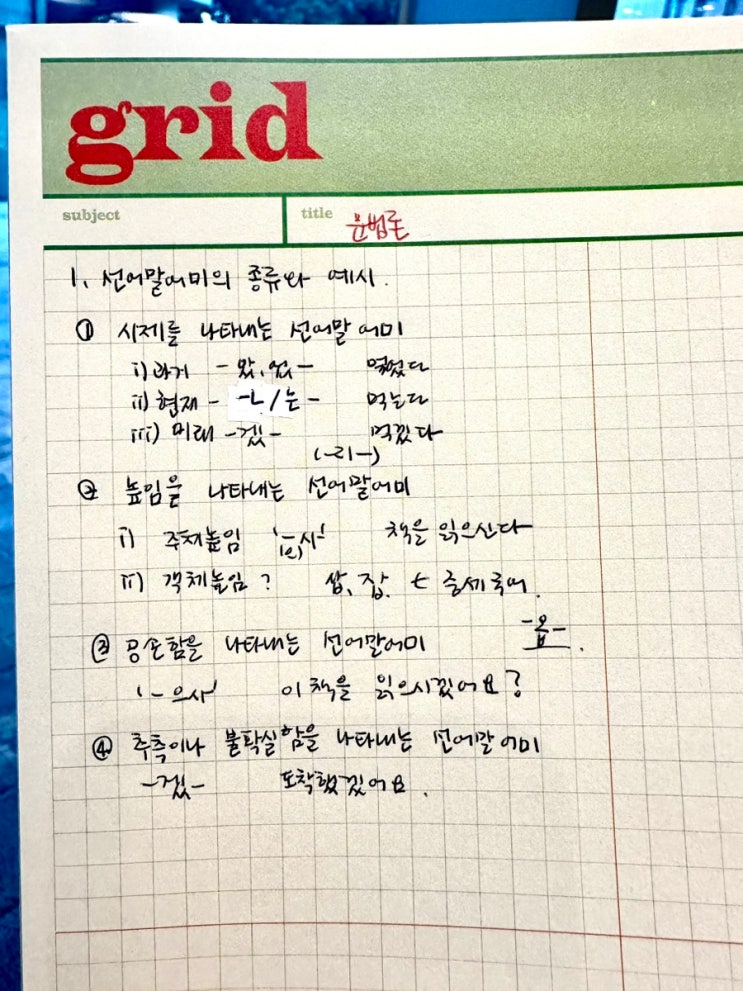 grid
subject
title 문법론
1. 선어말어미의 종류와 예시.
① 시제를 나타내는 선어말 어미
i) 과거 - 았, 었 - 먹었다
ii) 현재 - -ㄴ/는 - 먹는다
iii) 미래 -겠- 먹겠다
(-리-)
② 높임을 나타내는 선어말어미
i) 주체높임 '-(으)시-' 책을 읽으신다
ii) 객체높임? 삽, 잡. ← 중세국어.
③ 공손함을 나타내는 선어말어미 -옵-.
'-으시' 이 책을 읽으시겠어요?
④ 추측이나 불확실함을 나타내는 선어말 어미
-겠- 도착했겠어요.